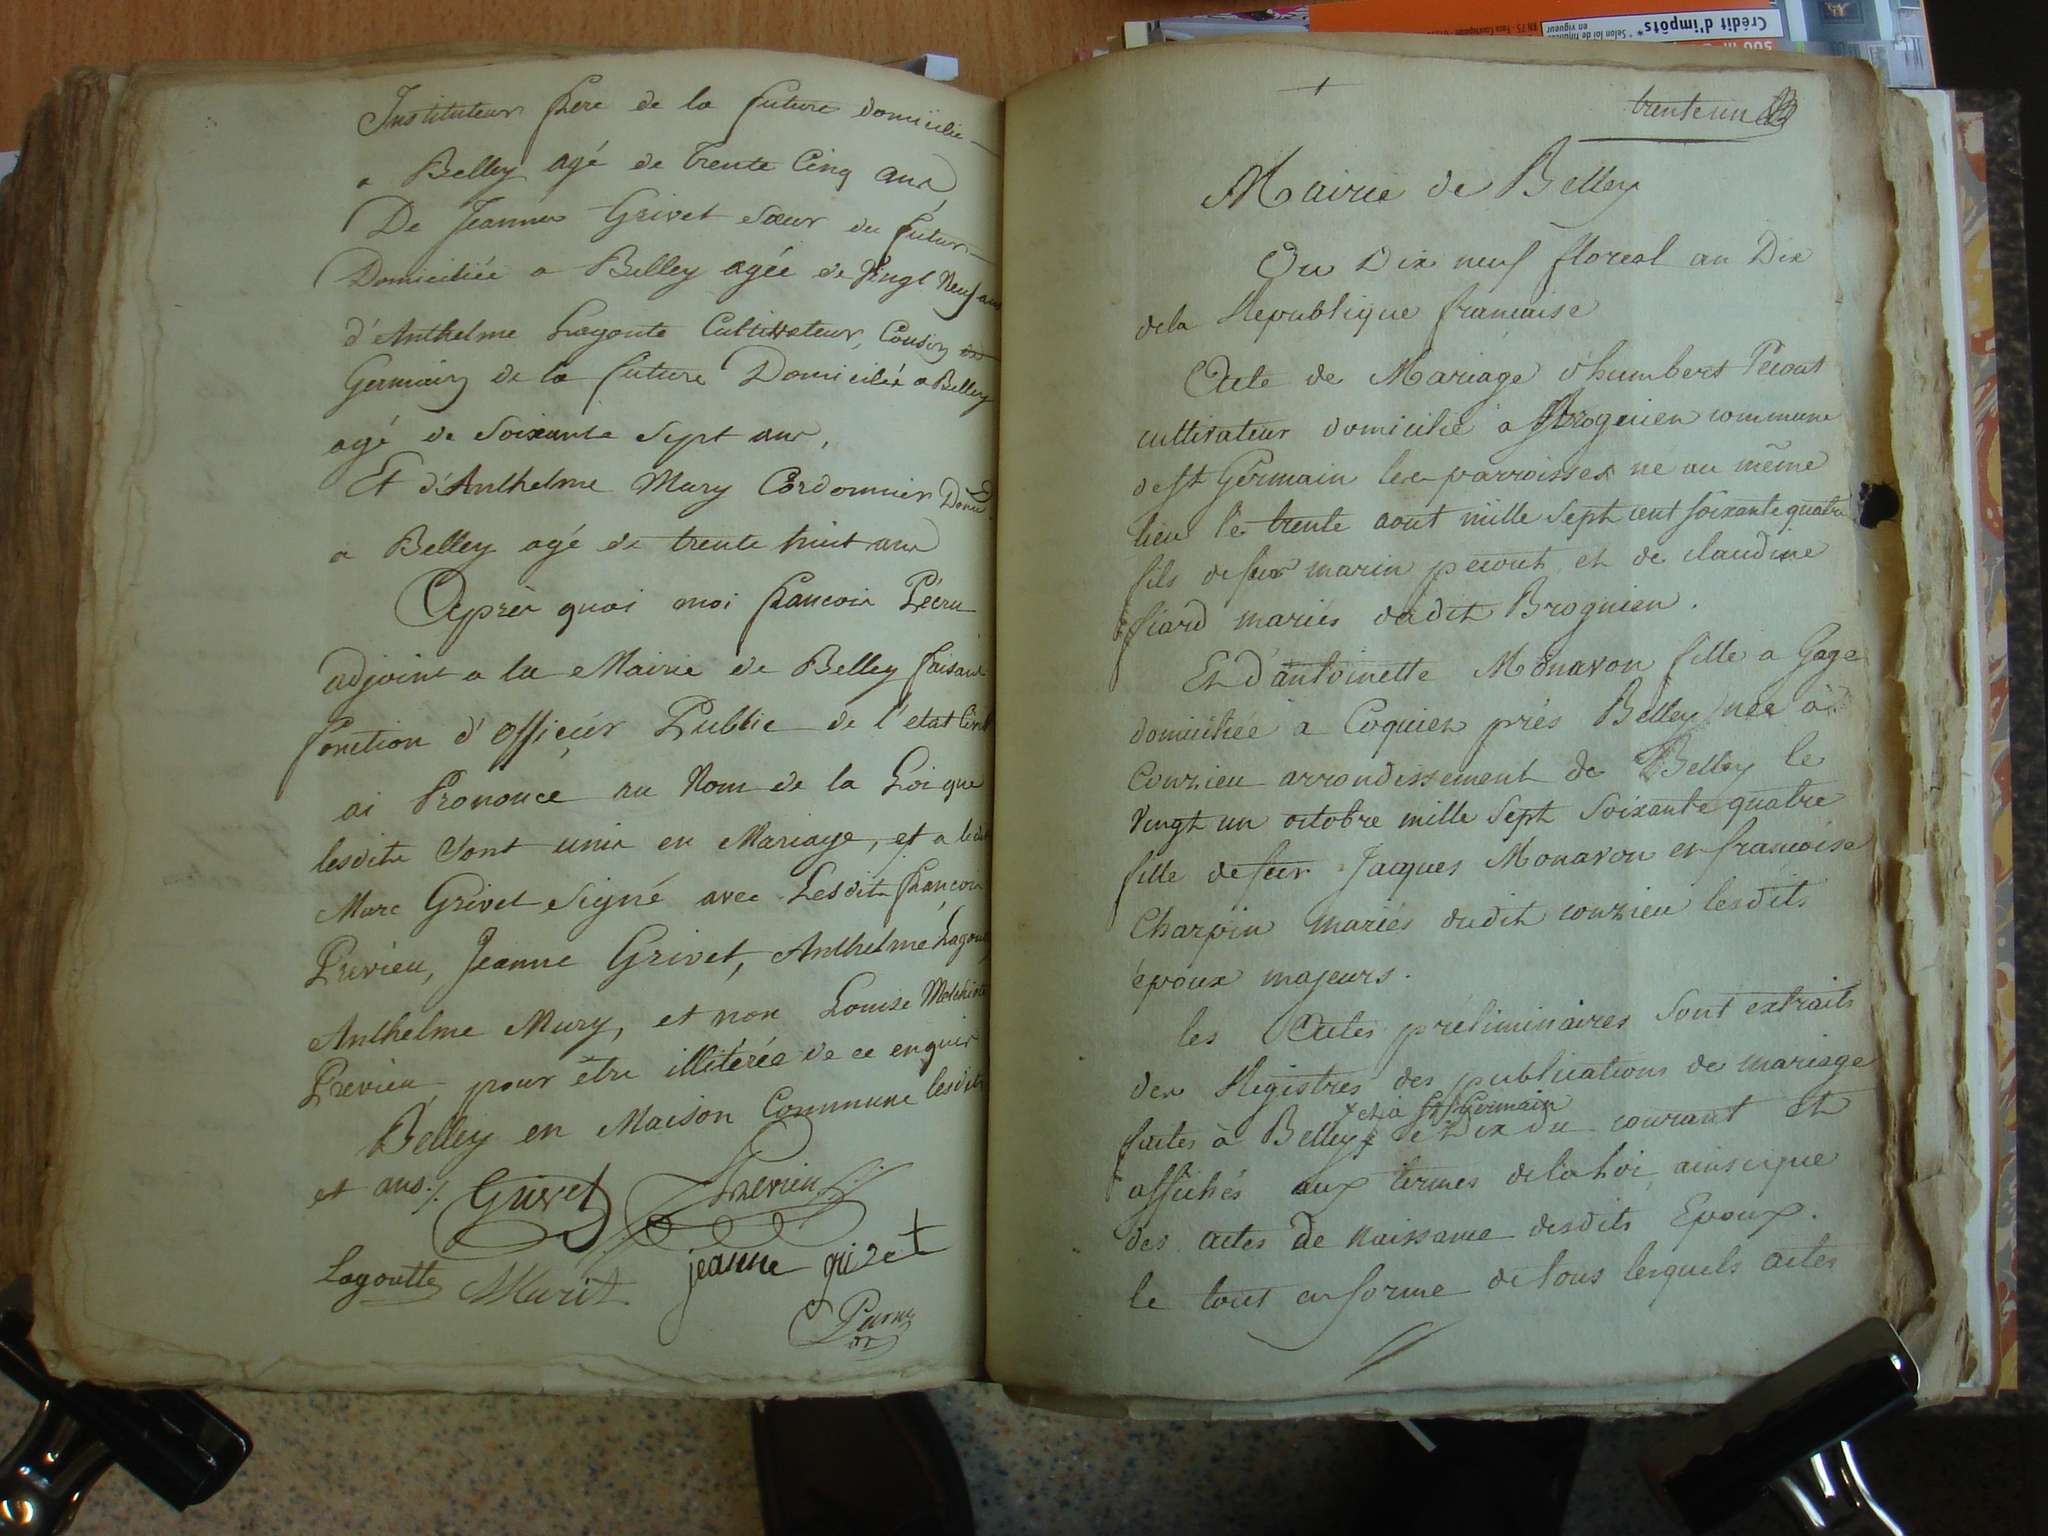 Instituteur frere de la future domicilié
a Belley agé de trente Cinq ans
De Jeanne Grivet sœur du futur
Domiciliée a Belley agée de Vingt Neuf ans
d'Anthelme Lagoute Cultivateur, Cousin
Germain de la future Domicilié a Belley
agé de soixante sept ans,
Et d'Anthelme Mury Cordonnier Domi
a Belley agé de trente huit ans
Après quoi moi francois
adjoint a la Mairie de Belley faisant
fonction d'officier Public de l'etat Civil
ai Prononcé au Nom de la Loi que
lesdits sont unis en Mariage, et a ledit
Marc Grivet signé avec Lesdits francois
Prévieu, Jeanne Grivet, Anthelme Lagoute
Anthelme Mury, et non Louise
Prévieu, pour être illitérée de ce enquis
Belley en Maison Commune lesdits
et ans
Grivet Previeu
Lagoutte Murit jeanne grivet
trente un
Mairie de Belley
Du Dix neuf floreal an Dix
de la Republique francaise
Acte de Mariage d'humbert Pecout
cultivateur domicilié à Brognien commune
de St Germain les parroisses né au même
lieu le trente aout mille sept cent soixante quatre
fils de feu marin pecout et de claudine
fiard mariés dudit Brognien.
Et d'antoinette Monavon fille a Gage
domiciliée a Coquien près Belley née à
Conzieu arrondissement de Belley le
vingt un octobre mille sept soixante quatre
fille de feu Jacques Monavon et francoise
Charpin mariés dudit conzieu lesdits
époux majeurs.
les Actes préliminaires sont extraits
des Registres des publications de mariage
et à St Germain
faites à Belley le Dix du courant et
affichés aux termes de la Loi, ainsi que
des actes de naissance desdits Epoux.
le tout en forme de tous lesquels actes
500
Crédit d'impôts
* Selon loi de finances
en vigueur